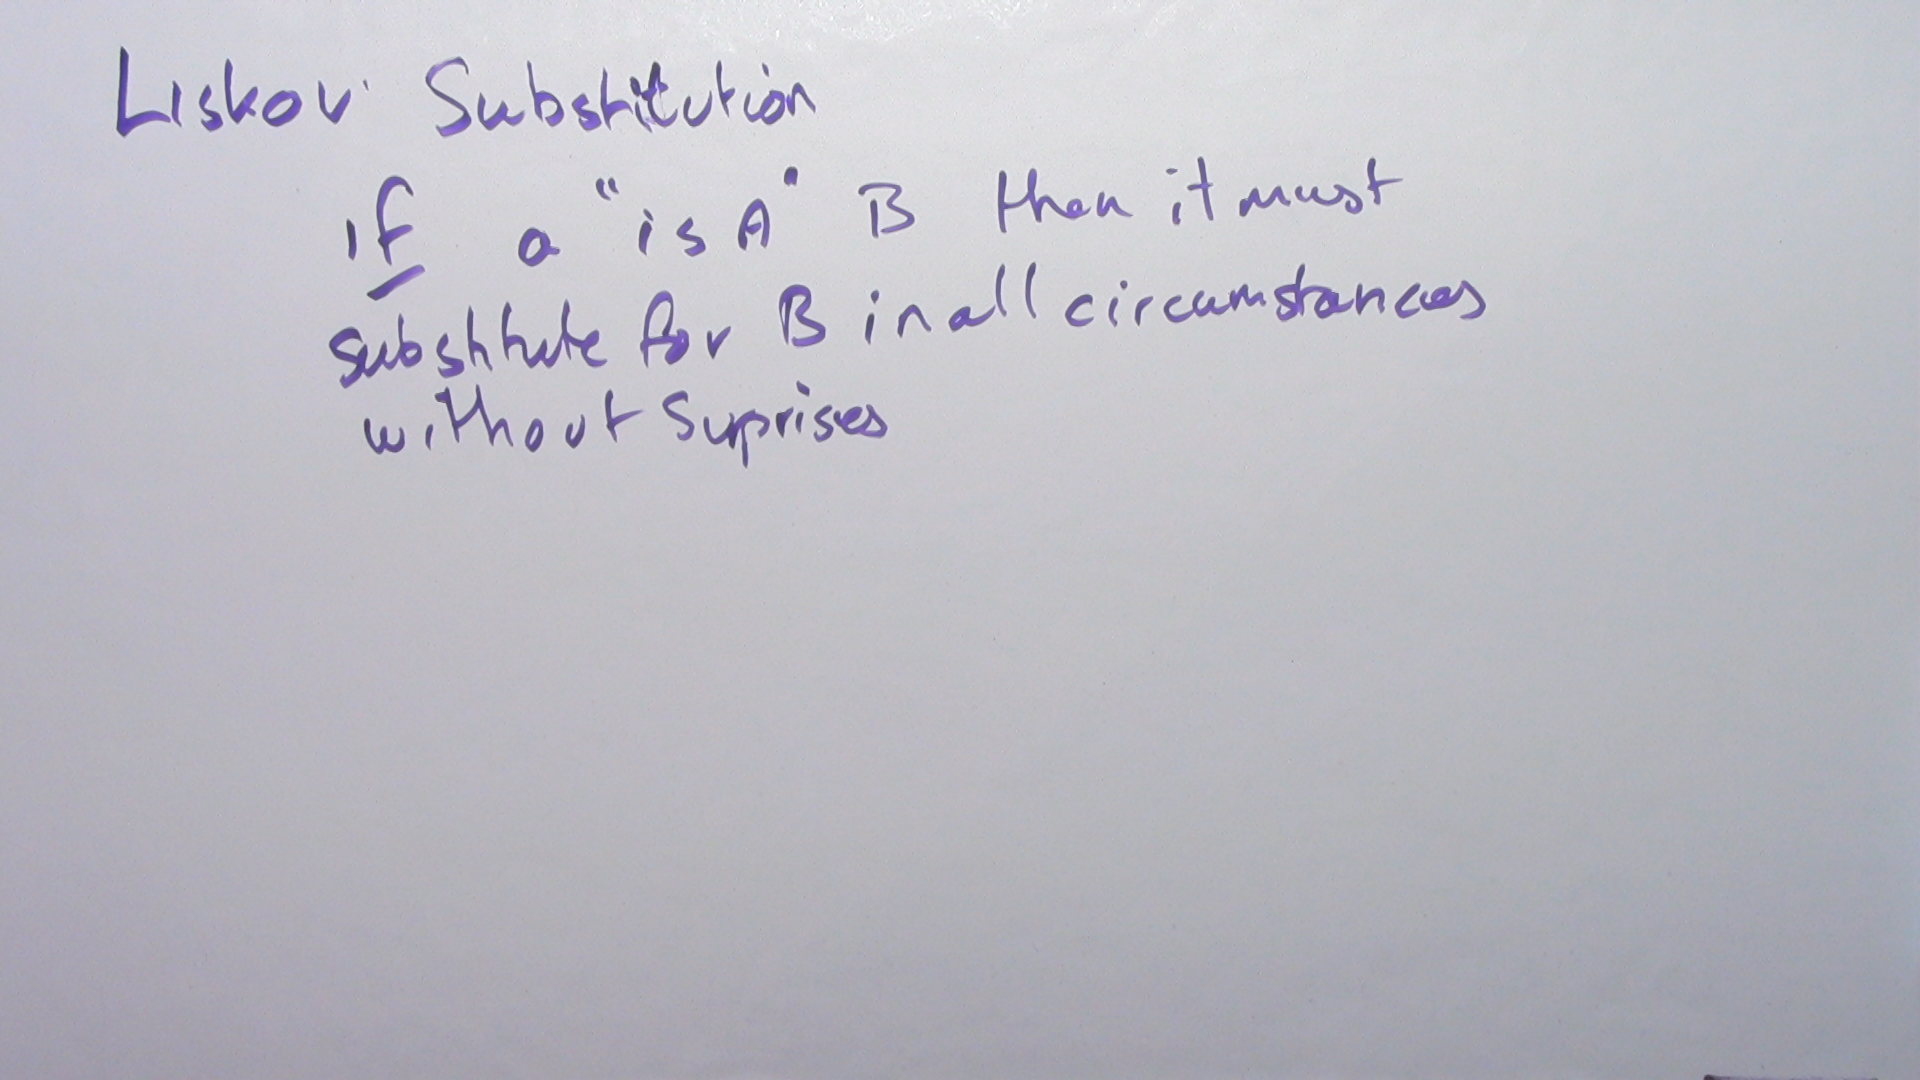 Liskov Substitution
if a "is A" B then it must
substitute for B in all circumstances
without Surprises